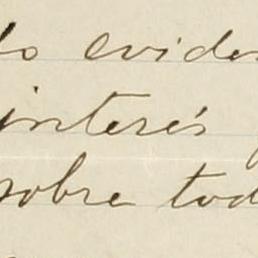 lo eviden
interés
sobre tod